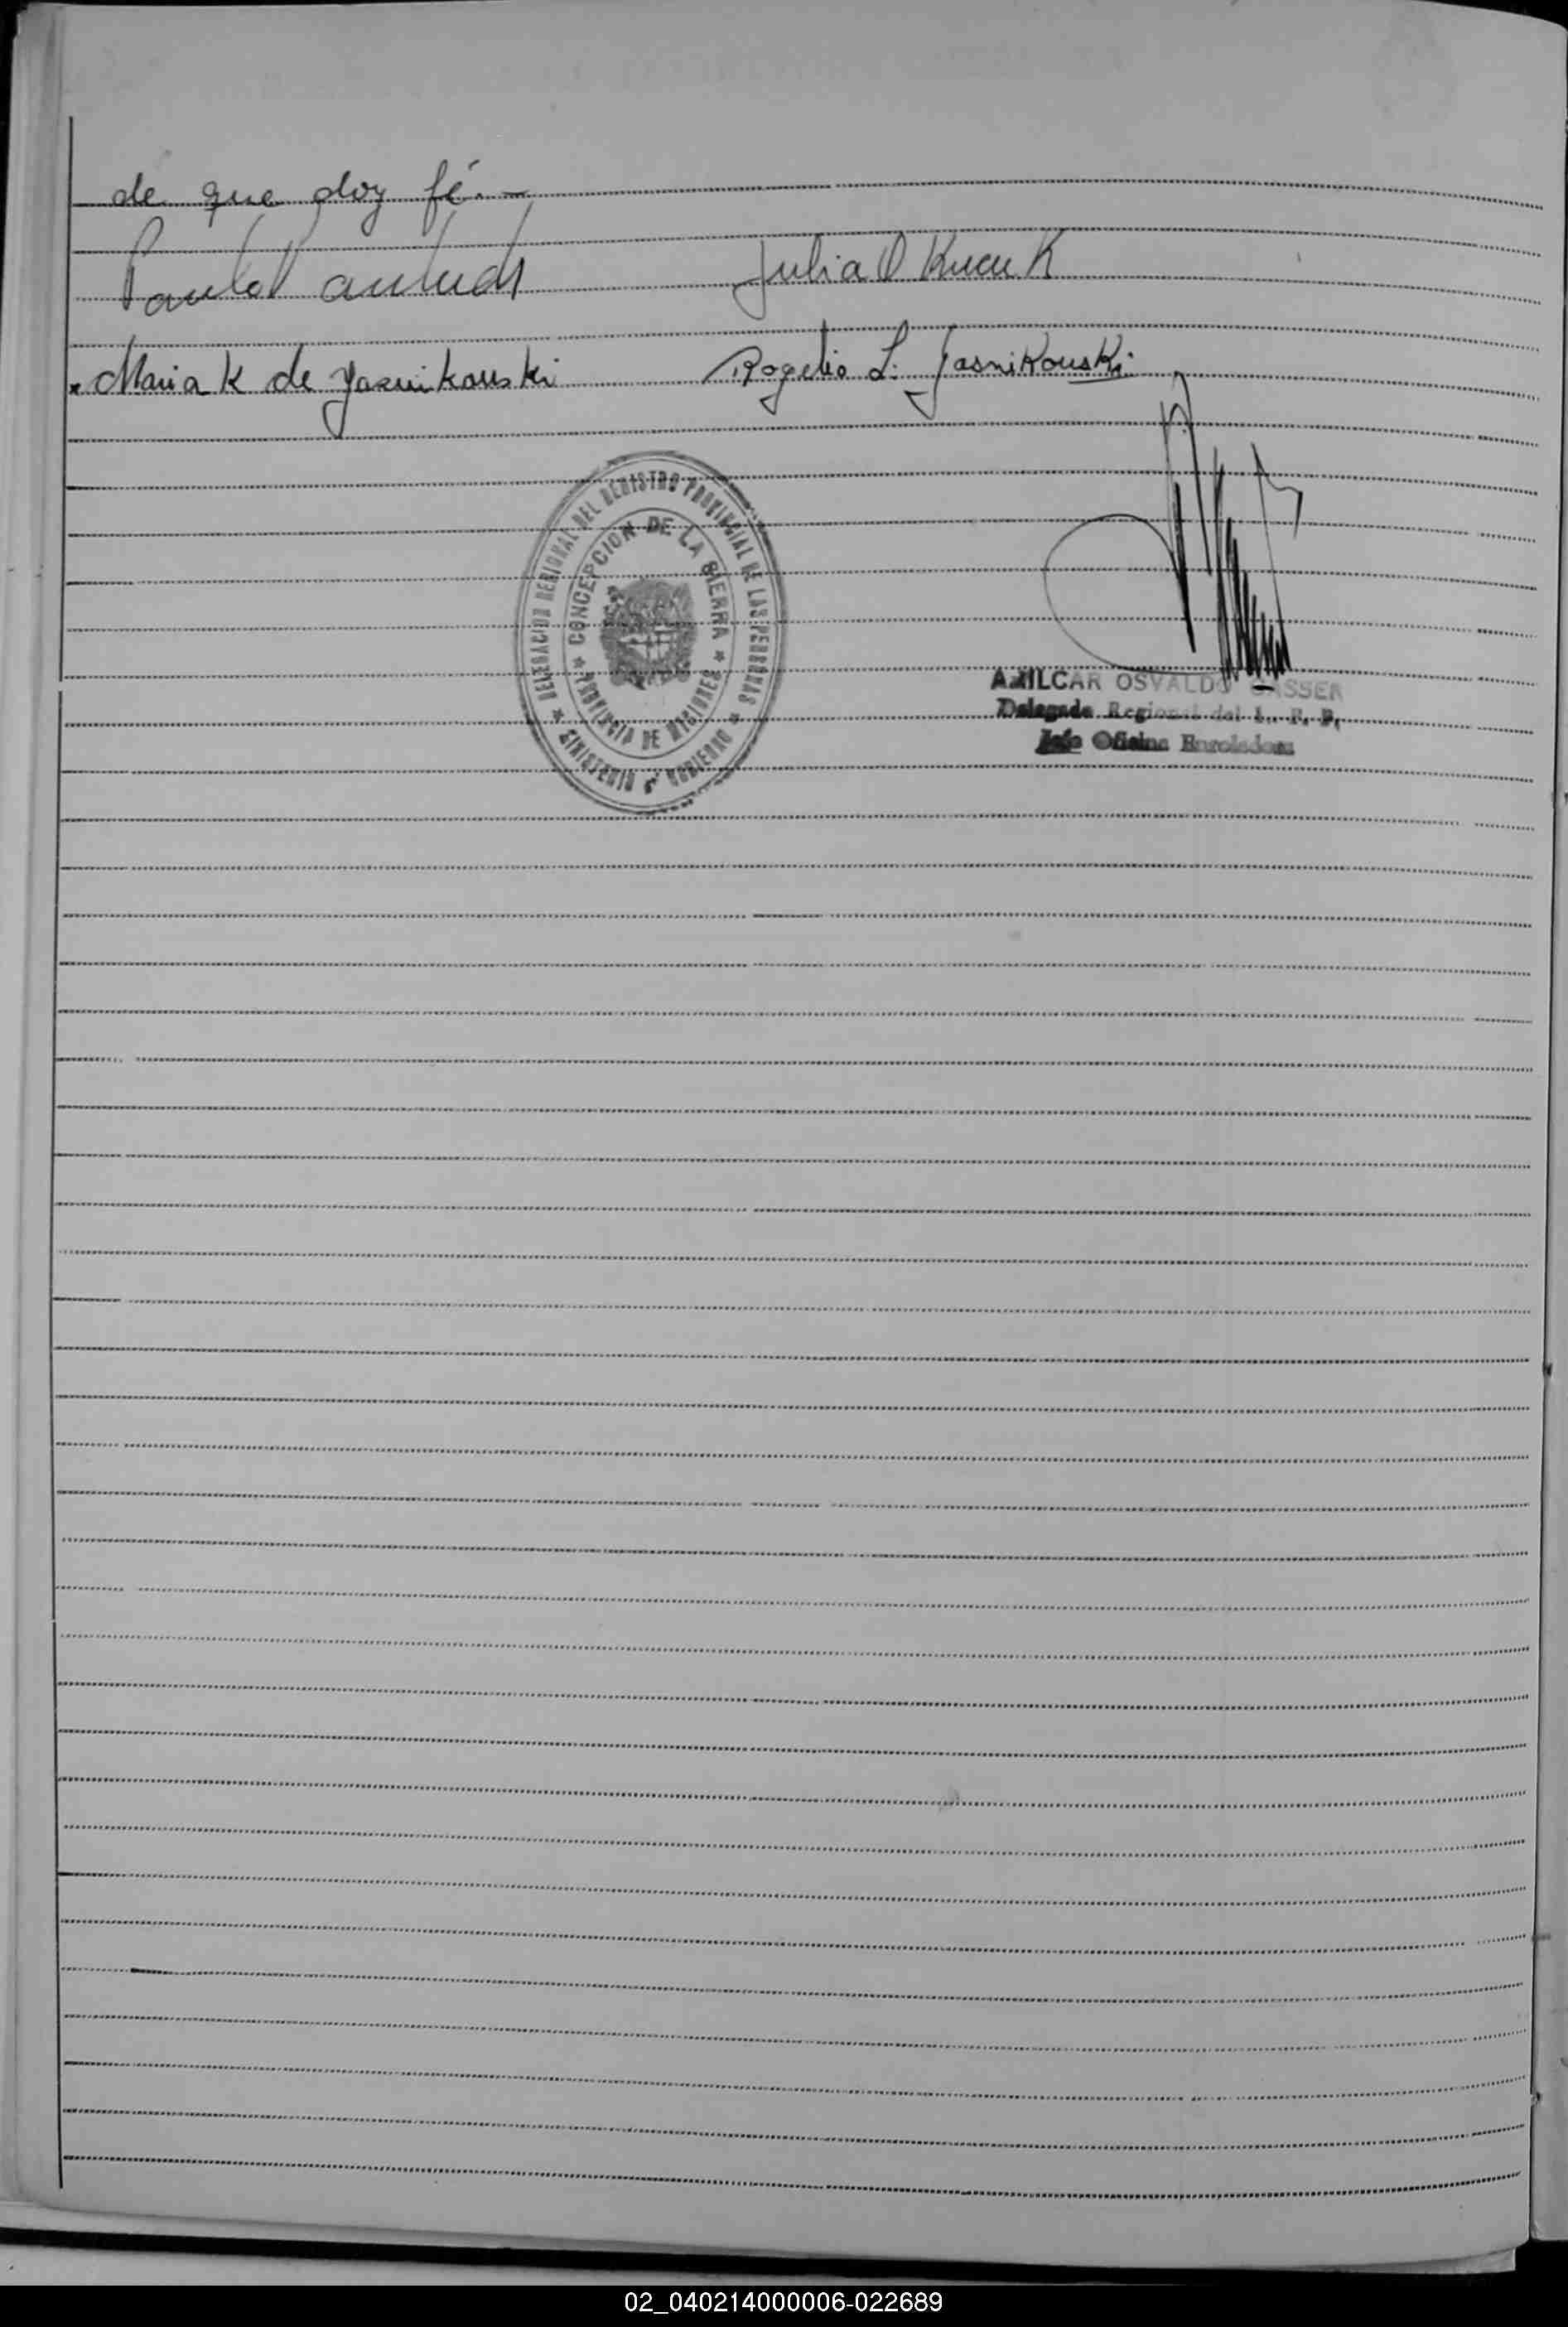 de que doy fé.—
Julia O Kucuk
Maria K de Jasnikouski Rogelio L. Jasnikouski
DELEGACION REGIONAL DEL REGISTRO PROVINCIAL DE LAS PERSONAS
★ MINISTERIO DE GOBIERNO ★
★ CONCEPCION DE LA SIERRA ★
PROVINCIA DE MISIONES
AMILCAR OSVALDO GASSER
Delegado Regional del R. P. P.
Jefe Oficina Enroladora
02_040214000006-022689